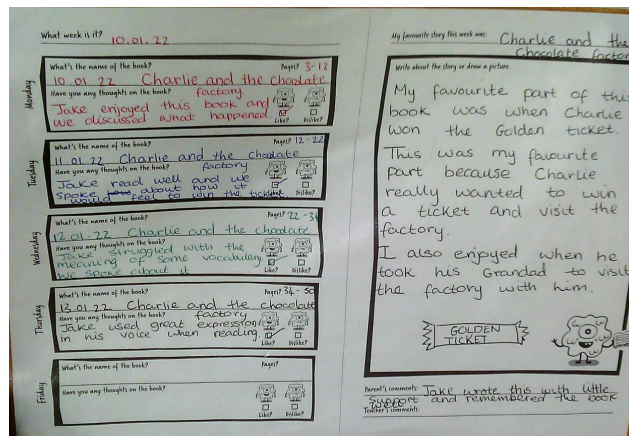 What week is it? 10.01.22
Monday
What's the name of the book? Pages? 3-12
10.01.22 Charlie and the chocolate
Have you any thoughts on the book? factory
Jake enjoyed this book and
we discussed what happened
Like? Dislike?
Tuesday
What's the name of the book? Pages? 12-22
11.01.22 Charlie and the chocolate
Have you any thoughts on the book? factory
Jake read well and we
spoke about how it
would feel to win the ticket.
Like? Dislike?
Wednesday
What's the name of the book? Pages? 22-34
12.01.22 Charlie and the chocolate
Have you any thoughts on the book?
Jake struggled with the
meaning of some vocabulary
we spoke about it
Like? Dislike?
Thursday
What's the name of the book? Pages? 34-50
13.01.22 Charlie and the chocolate
Have you any thoughts on the book? factory
Jake used great expression
in his voice when reading.
Like? Dislike?
Friday
What's the name of the book? Pages?
Have you any thoughts on the book?
Like? Dislike?
My favourite story this week was: Charlie and the
Chocolate factory
Write about the story or draw a picture.
My favourite part of this
book was when Charlie
won the Golden ticket.
This was my favourite
part because Charlie
really wanted to win
a ticket and visit the
factory.
I also enjoyed when he
took his Grandad to visit
the factory with him.
GOLDEN
TICKET
Parent's comments: Jake wrote this with little
support and remembered the book
Teacher's comments: